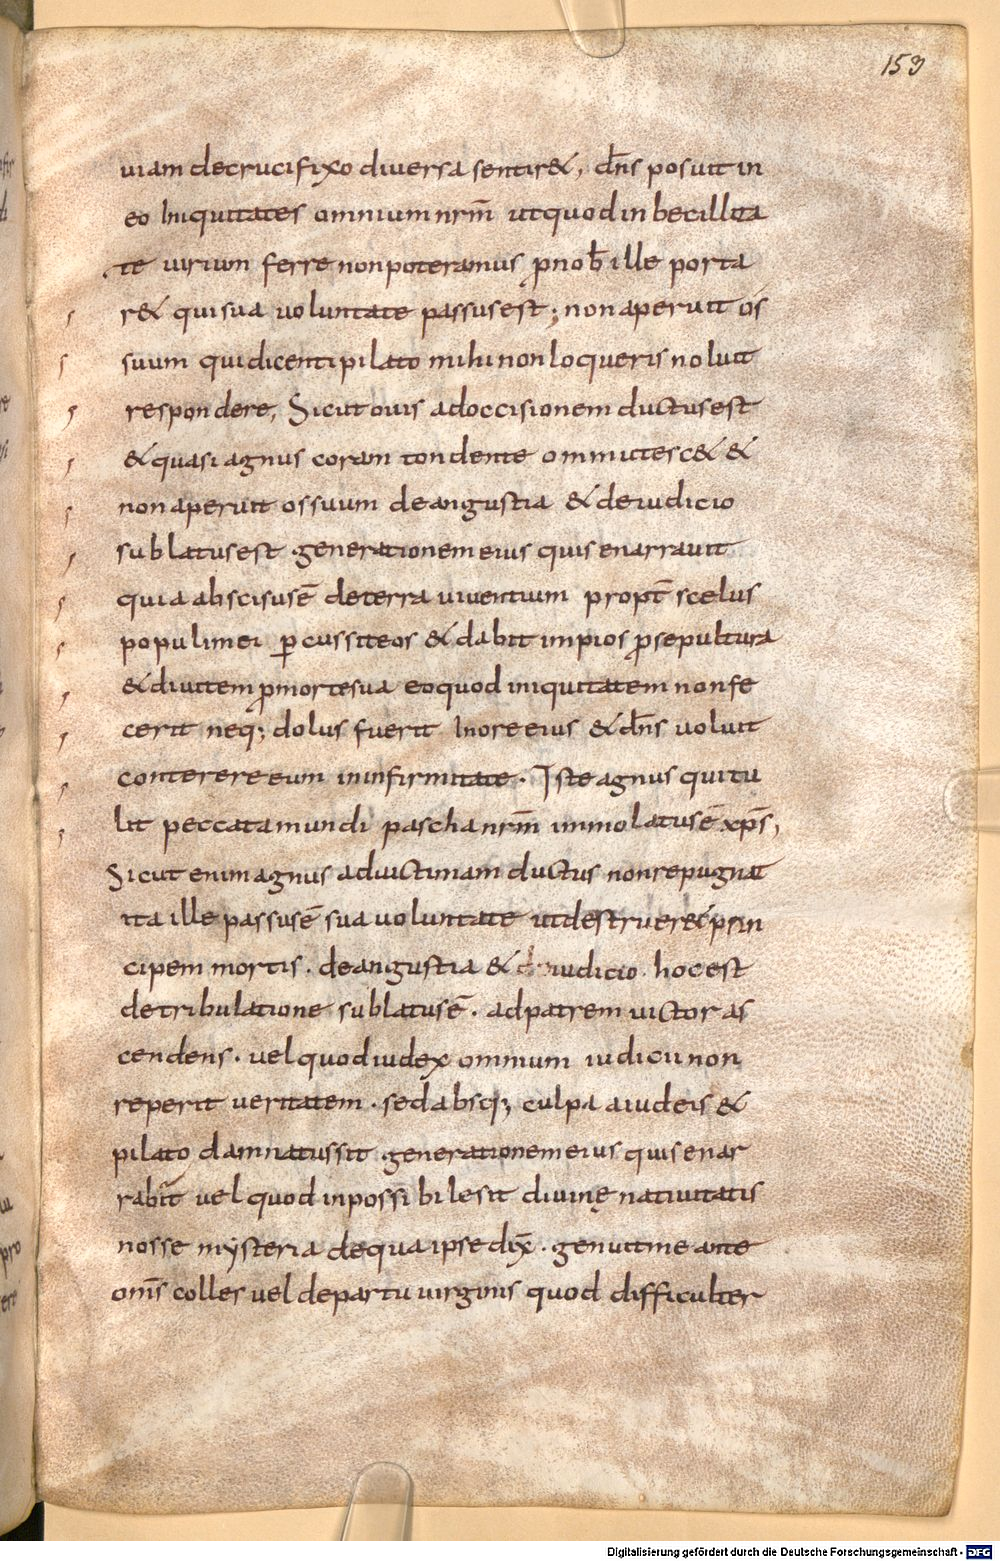 153
uiam decrucifixo diuersa sentir&, dn̄s posuit in
eo Iniquitates omnium nr̄m utquod in becillita
te uirium ferre non poteramus ꝓ nob̄ ille porta
r& qui sua uoluntate passus est; non aperuit os
suum qui dicenti pilato mihi non loqueris noluit
respondere, Sicut ouis adoccisionem ductus est
& quasi agnus coram tondente ommutesc& &
non aperuit os suum de angustia & de iudicio
sublatus est . generationem eius quis enarrauit
quia abscisus ē de terra uiuentium propt̄ scelus
populi mei ꝑcussit eos & dabit impios ꝓ sepultura
& diuitem ꝓ morte sua eo quod iniquitatem non fe
cerit neq; dolus fuerit In ore eius & dn̄s uoluit
conterere eum in infirmitate . Iste agnus qui tu
lit peccata mundi pascha nr̄m immolatus ē xp̄s,
Sicut enim agnus ad uictimam ductus non repugnat
ita ille passus ē sua uoluntate ut destruer& prin
cipem mortis . de angustia & de iudicio . hoc est
de tribulatione sublatus ē . ad patrem uictor as
cendens . uel quod iudex omnium iudicii non
reperit ueritatem . sed absq; culpa a iudeis &
pilato damnatus sit . generationem eius quis enar
rabit uel quod inpossibile sit diuinę natiuitatis
nosse mẏsteria de qua ipse dix̄ . genuit me ante
om̄s colles uel de partu uirginis quod difficulter
Digitalisierung gefördert durch die Deutsche Forschungsgemeinschaft - DFG